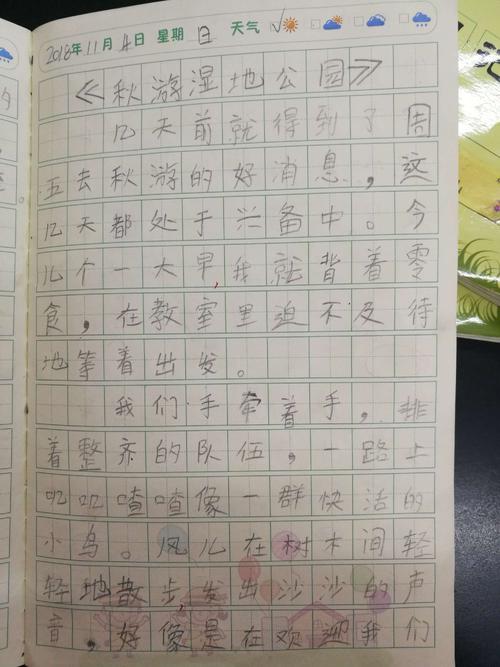 2018年11月4日 星期日 天气 √
《秋游湿地公园》
几天前就得到了周
五去秋游的好消息，这
几天都处于兴备中。今
儿个一大早，我就背着零
食，在教室里迫不及待
地等着出发。
我们手牵着手，排
着整齐的队伍，一路上
叽叽喳喳像一群快活的
小鸟。风儿在树木间轻
轻地散步，发出沙沙的声
音，好像是在欢迎我们